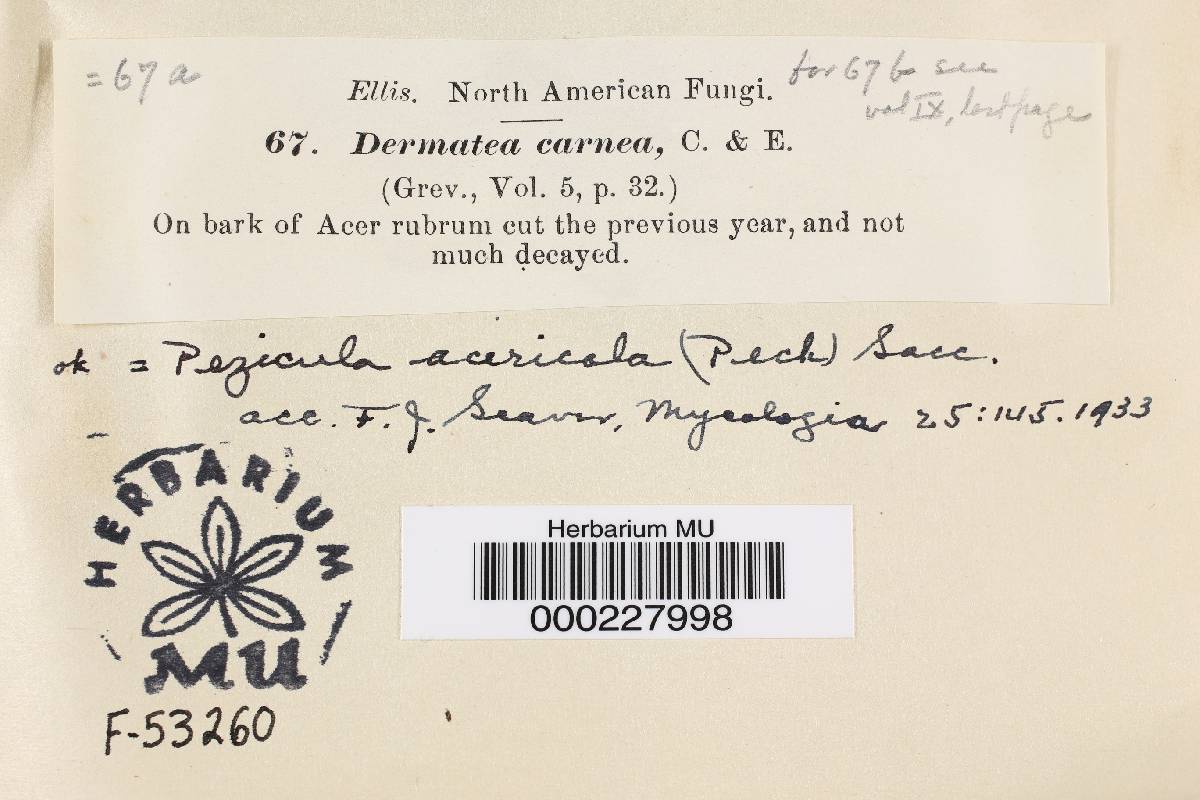 = 67 a
for 67 b see
vol IX, last page
Ellis. North American Fungi.
67. Dermatea carnea, C. & E.
(Grev., Vol. 5, p. 32.)
On bark of Acer rubrum cut the previous year, and not
much decayed.
ok = Pezicula acericola (Peck) Sacc.
acc. F. J. Seaver, Mycologia 25:145. 1933
HERBARIUM
MU
F-53260
Herbarium MU
000227998